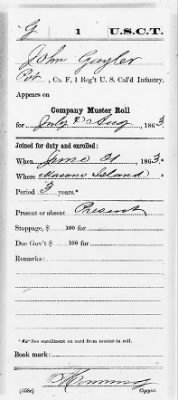 G | 1 | U.S.C.T.
John Gayler
Pvt., Co. F, 1 Reg't U. S. Col'd Infantry.
Appears on
Company Muster Roll
for July & Aug, 1863.
Joined for duty and enrolled:
When June 21, 1863.
Where Masons Island
Period 3 years.*
Present or absent Present
Stoppage, $ 100 for
Due Gov't $ 100 for
Remarks:
*See enrollment on card from muster-in roll.
Book mark:
(358c)
Copyist.